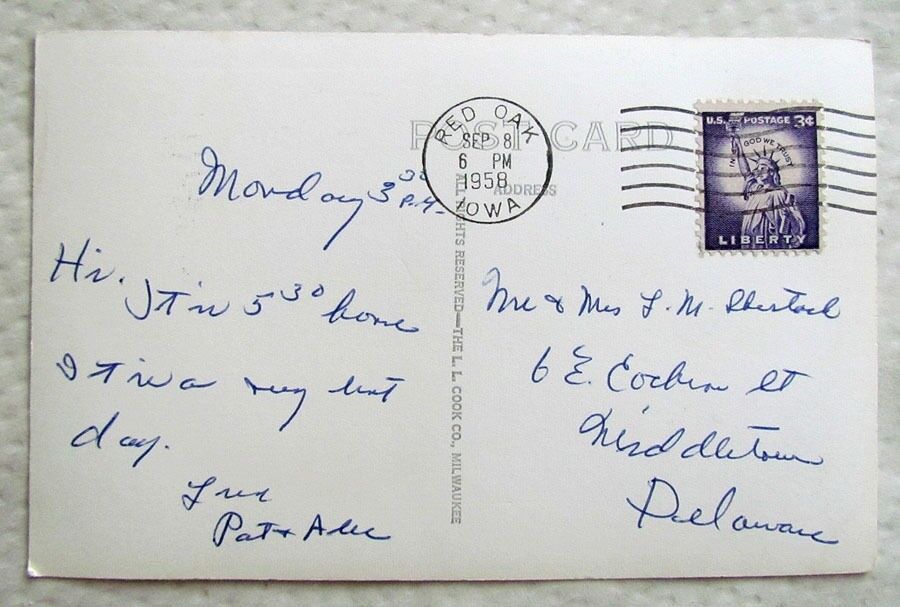 POST CARD
ADDRESS
RED OAK
SEP 8
6 PM
1958
IOWA
U.S. POSTAGE 3¢
IN GOD WE TRUST
LIBERTY
Monday 3 30 P.M.
Hi.
It is 5 30 home
It is a very hot
day.
Pat & Alec
ALL RIGHTS RESERVED—THE L. L. COOK CO., MILWAUKEE
Mr & Mrs L. M.
6 E. Cochran St
Middletown
Delaware